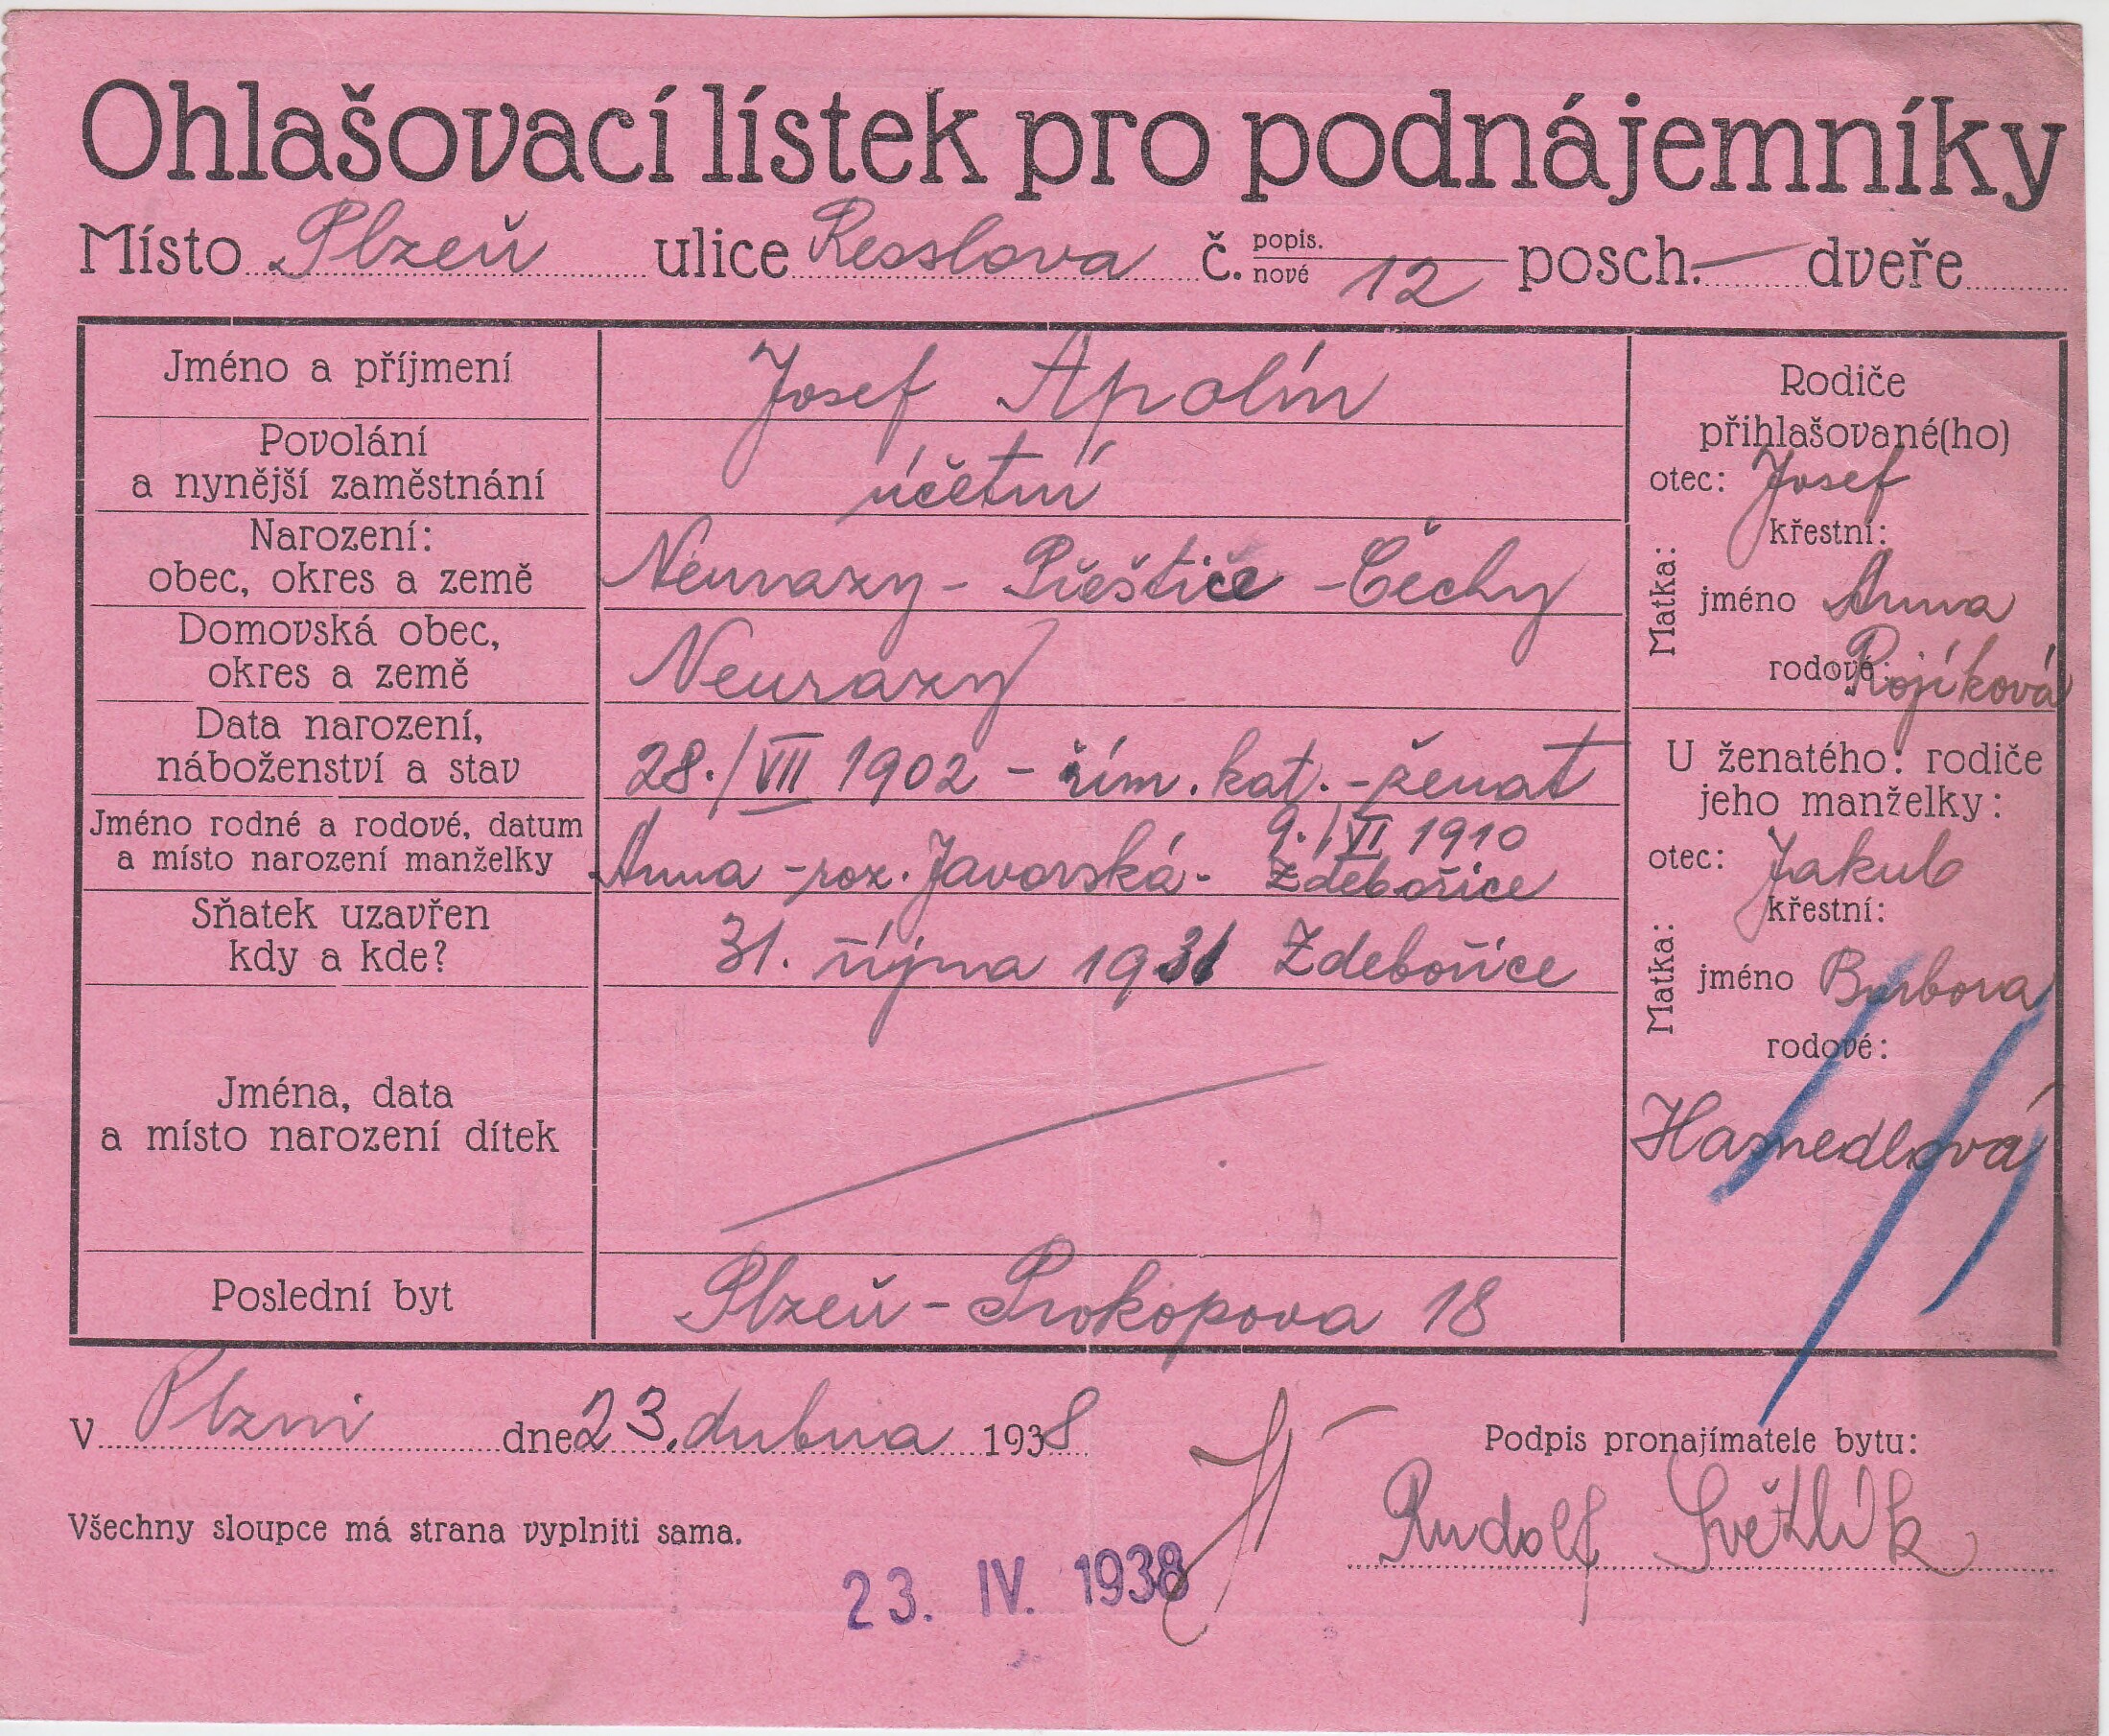 Ohlašovací lístek pro podnájemníky
Místo Plzeň ulice Resslova č. popis. nové 12 posch. — dveře
Jméno a příjmení Josef Apolín
Povolání
a nynější zaměstnání účetní
Narození:
obec, okres a země Neurazy - Přeštice - Čechy
Domovská obec,
okres a země Neurazy
Data narození,
náboženství a stav 28./VII 1902 - řím. kat. - ženat
Jméno rodné a rodové, datum
a místo narození manželky Anna - roz. Javorská - 9./VI 1910
Zdebořice
Sňatek uzavřen
kdy a kde? 31. října 1931 Zdebořice
Jména, data
a místo narození dítek
Poslední byt Plzeň - Prokopova 18
Rodiče
přihlašované(ho)
otec: Josef
Matka:
křestní:
jméno Anna
rodové: Rojíková
U ženatého: rodiče
jeho manželky:
otec: Jakub
Matka:
křestní:
jméno Barbora
rodové:
V Plzni dne 23. dubna 1938
Podpis pronajímatele bytu:
Rudolf Světlík
Všechny sloupce má strana vyplniti sama.
23. IV. 1938